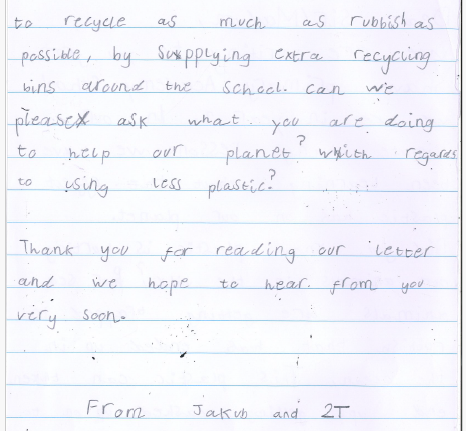 to recycle as much as rubbish as
possible, by supplying extra recycling
bins around the school. can we
please ask what you are doing
to help our planet? with regards
to using less plastic?
Thank you for reading our letter
and we hope to hear. from you
very soon.
From Jakub and 2T